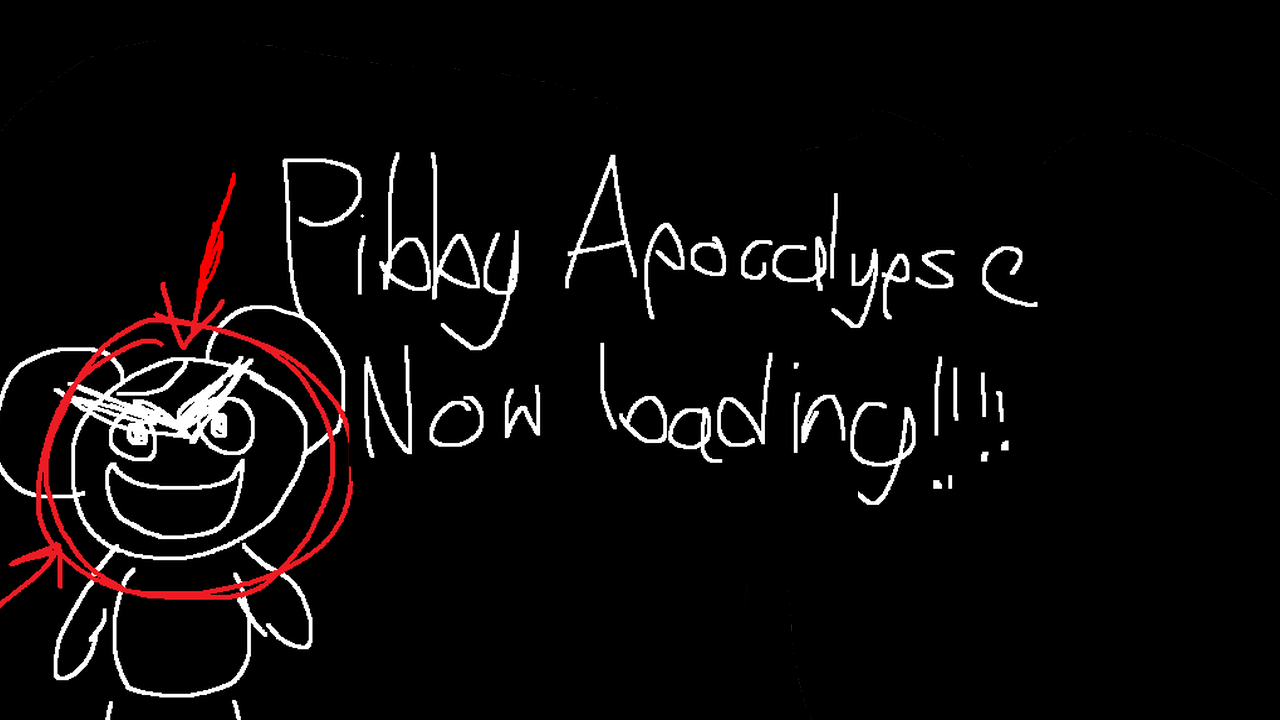 Pibby Apocalypse
Now loading!!!!